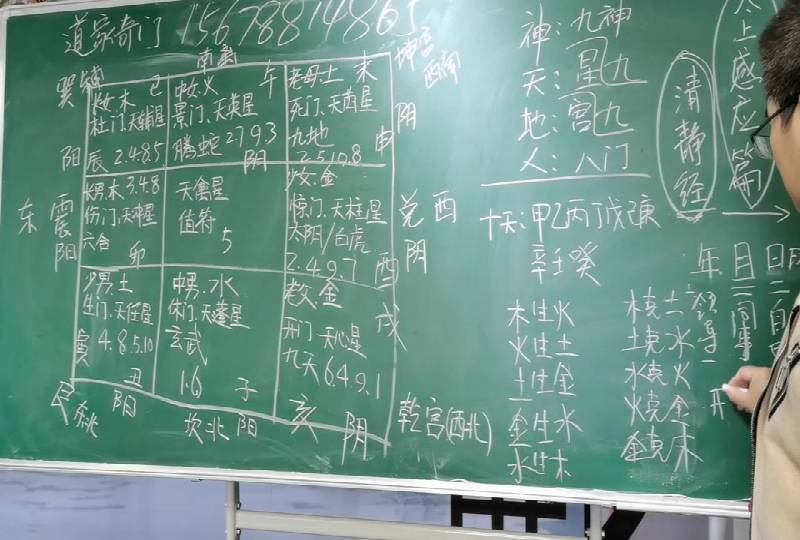 道家奇门 15678814865
南离
巽
坤宫
西南
长女.木 巳
杜门.天辅星
辰 2.4.8.5
中女.火 午
景门.天英星
腾蛇 2793
老母.土 未
死门.天芮星
九地 申
2.5.10.8
阳
阴
阴
东 震
阳
长男.木 3.4.8
伤门.天冲星
六合 卯
天禽星
值符
5
少女.金
惊门.天柱星
太阴/白虎
2.4.9.7 酉
兑 西
阴
少男.土
生门.天任星
寅 4.8.5.10
丑
中男.水
休门.天蓬星
玄武
1.6 子
老父.金
开门.天心星
九天 6.4.9.1
戌
亥
艮东北 阳
坎北阳
阴
乾宫(西北)
神:九神
天:星九
地:宫九
人:八门
十天:甲乙丙丁戊己庚
辛壬癸
木生火
火生土
土生金
金生水
水生木
木克土
土克水
水克火
火克金
金克木
清静经
太上感应篇
年 月 日
领导
同事
自